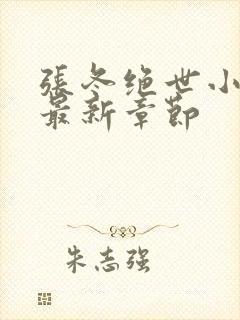 張冬绝世小
最新章節
朱志强